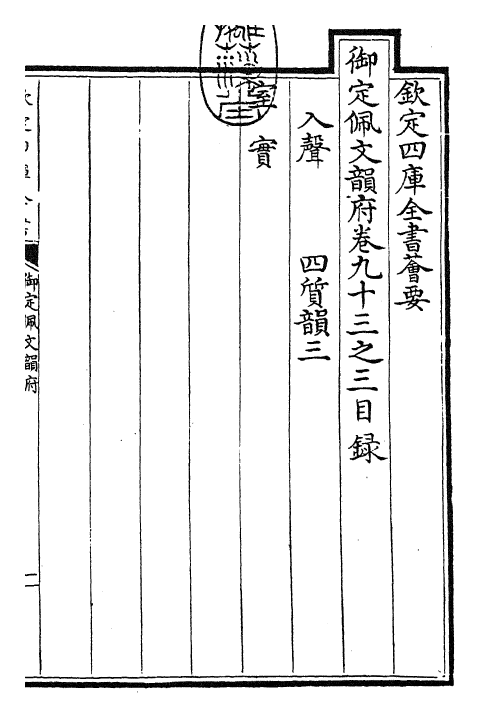 欽定四庫全書薈要
御定佩文韻府卷九十三之三目録
入聲　四質韻三
室　實
御定佩文韻府